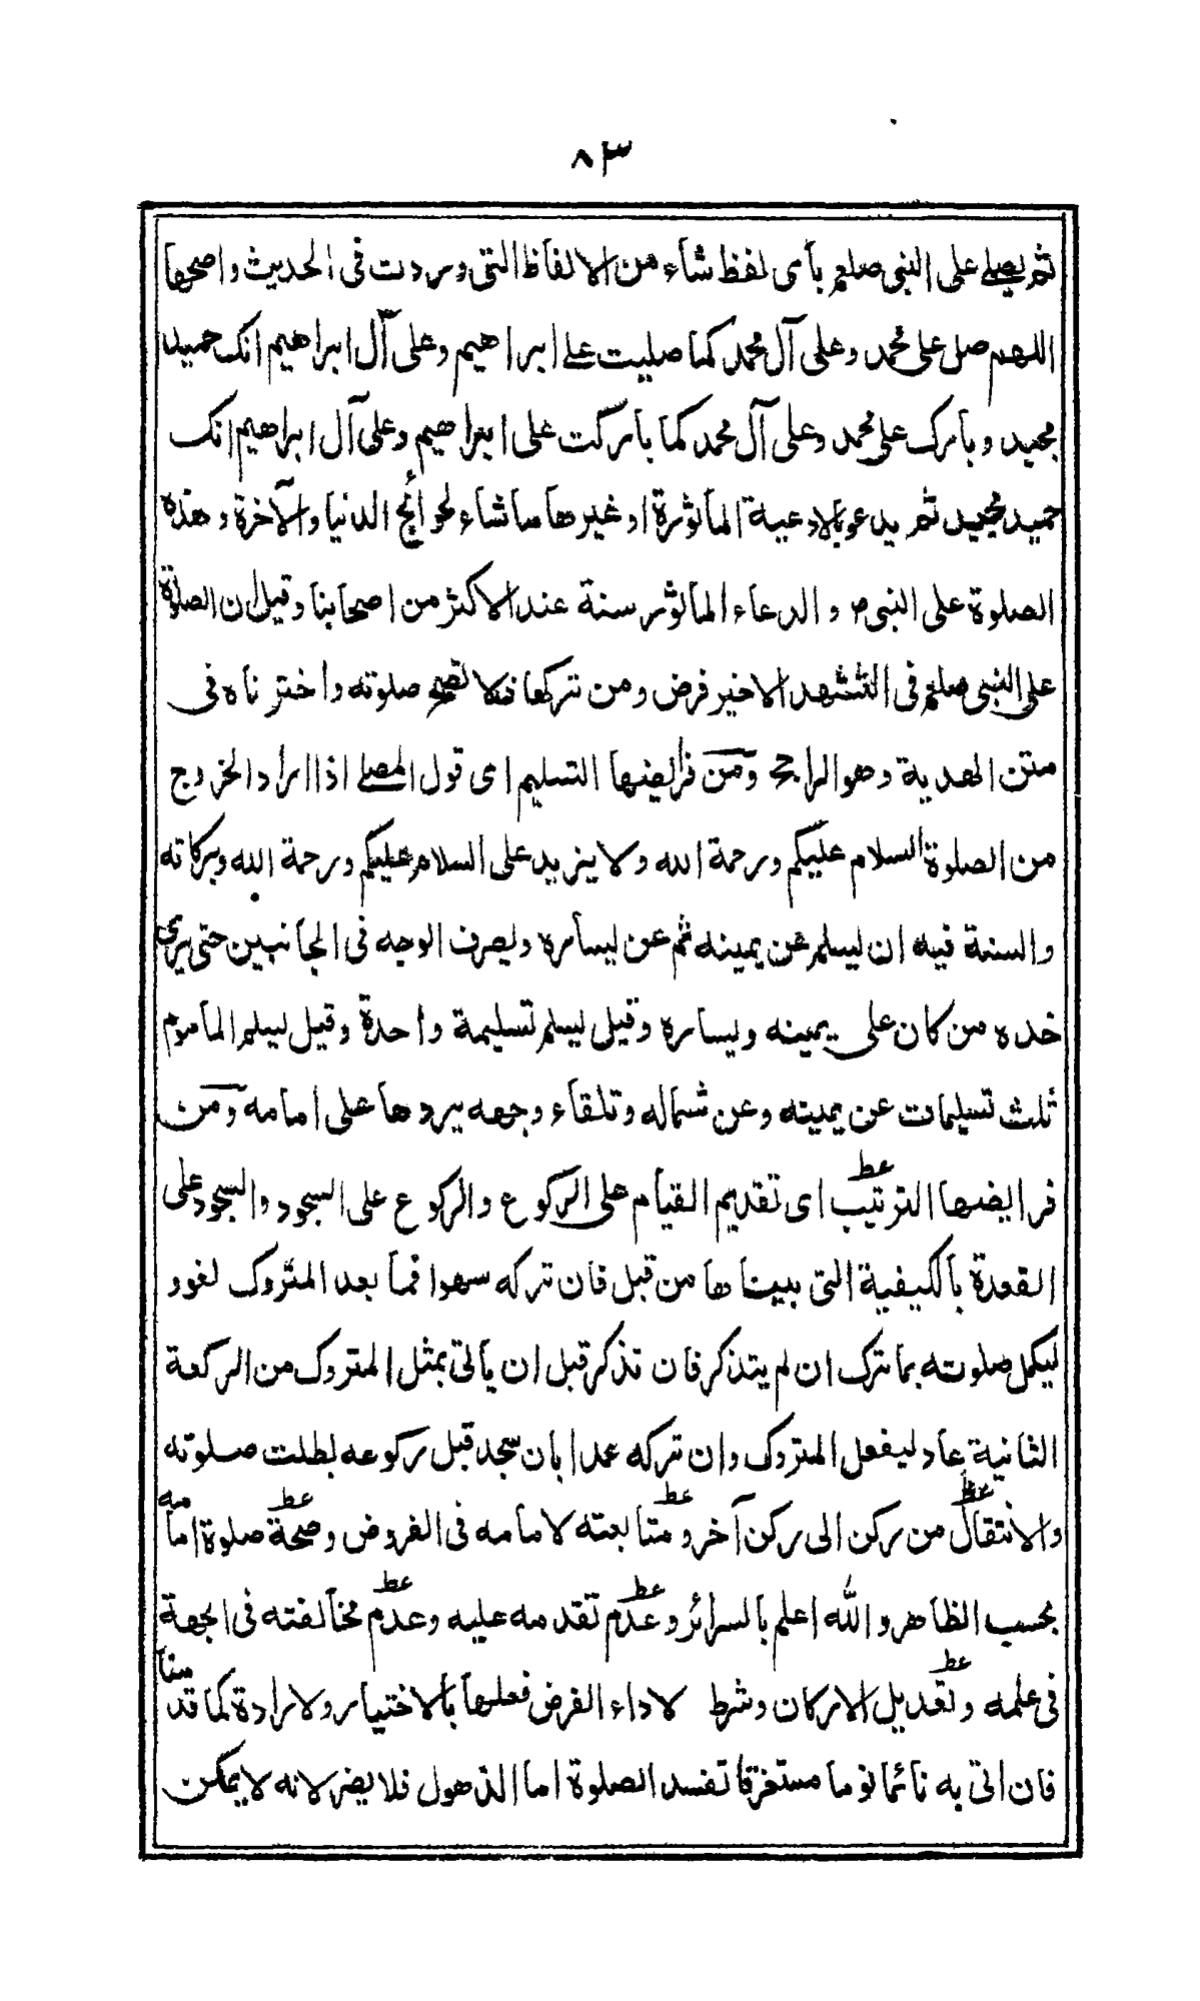 ٨٣
ثم يصلي على النبي صلعم بأى لفظ شاء من الالفاظ التى وردت فى الحديث واصحها
اللهم صل على محمد وعلى آل محمد كما صليت على ابراهيم وعلى آل ابراهيم انك حميد
مجيد وبارك على محمد وعلى آل محمد كما باركت على ابراهيم وعلى آل ابراهيم انك
حميد مجيد ثم يدعو بالادعية المأثورة او غيرها ما شاء لحوائج الدنيا والآخرة وهذه
الصلوة على النبى م والدعاء المأثور سنة عند الاكثر من اصحابنا وقيل ان الصلوة
على النبى صلعم فى التشهد الاخير فرض ومن تركها فلا تصح صلوته واخترناه فى
متن الهدية وهو الراجح ومن فرايضها التسليم اى قول المصلے اذا اراد الخروج
من الصلوة السلام عليكم ورحمة الله ولا يزيد على السلام عليكم ورحمة الله وبركاته
والسنة فيه ان يسلم عن يمينه ثم عن يساره ويصرف الوجه فى الجانبين حتى يرى
خده من كان على يمينه ويساره وقيل يسلم تسليمة واحدة وقيل يسلم الماموم
ثلث تسليمات عن يمينه وعن شماله وتلقاء وجهه يردها على امامه ومن
فرايضها الترتيب عط اى تقديم القيام على الركوع والركوع على السجود والسجود على
القعدة بالكيفية التى بيناها من قبل فان تركه سهوا فما بعد المتروك لغو و
ليكمل صلوته بما ترك ان لم يتذكر فان تذكر قبل ان يأتى بمثل المتروك من الركعة
الثانية عاد ليفعل المتروك وان تركه عمدا بان سجد قبل ركوعه بطلت صلوته
والانتقال عط من ركن الى ركن آخر ومتابعته عط لامامه فى الفروض وصحة عط صلوة امامه
بحسب الظاهر والله اعلم بالسرائر وعدم عط تقدمه عليه وعدم عط مخالفته فى الجهة
فى علمه وتعديل عط الاركان وشرط لاداء الفرض فعلها بالاختيار ولارادة كما قدمنا
فان اتى به نائما نوما مستغرقا تفسد الصلوة اما الذهول فلا يضر لانه لا يمكن